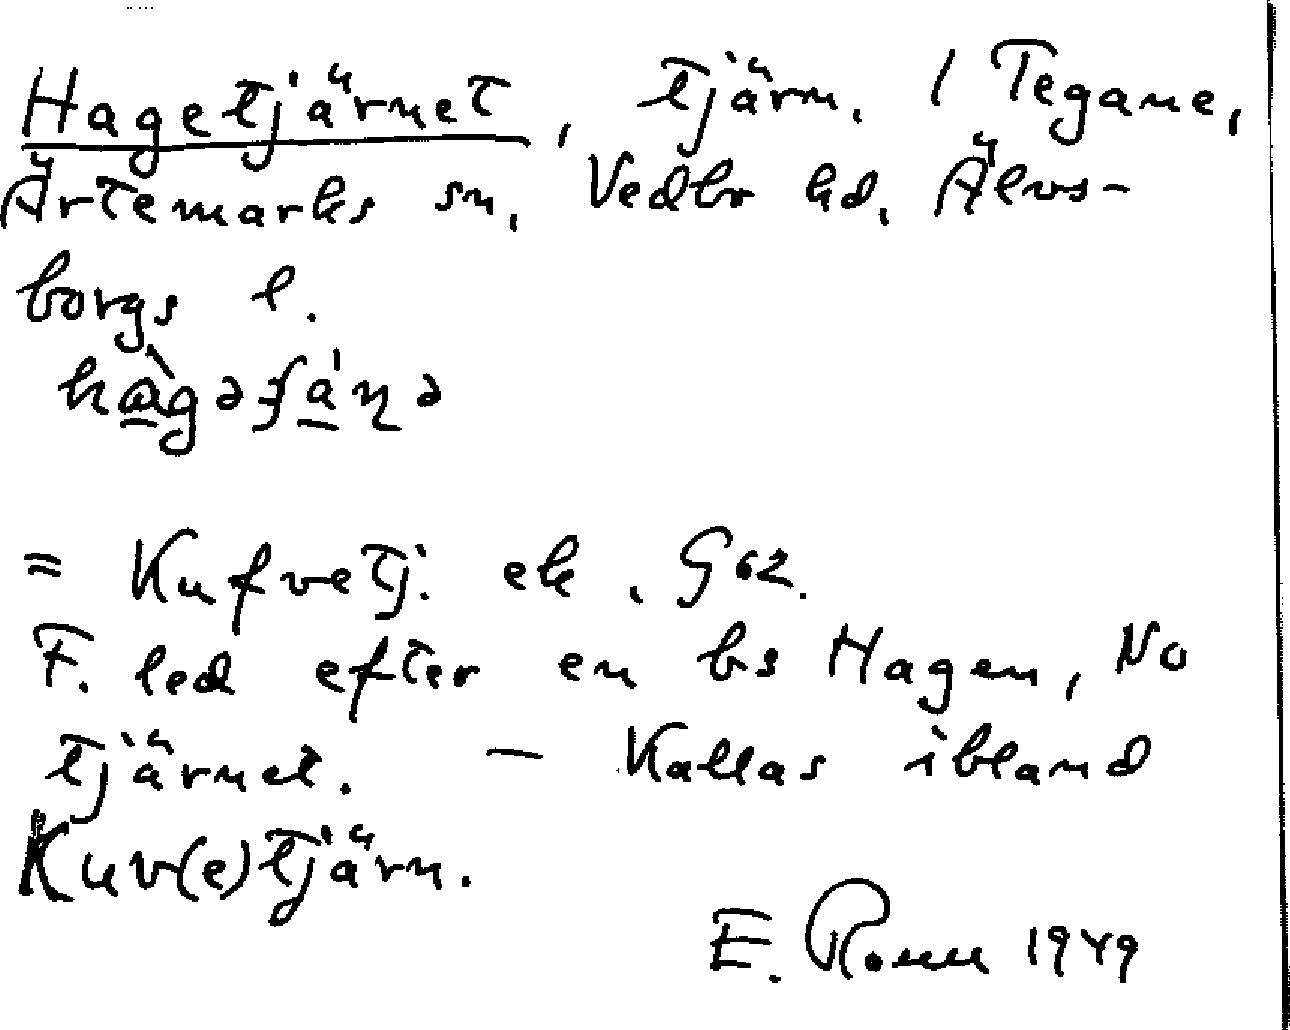 Hagetjärnet, tjärn. / Tegane,
Ärtemarks sn, Vedbo hd, Älvs-
borgs l.
= Kufvetj. ek. G62.
F. led efter en bs Hagen, No
tjärnet. — Kallas ibland
Kuv(e)tjärn.
E. 1949